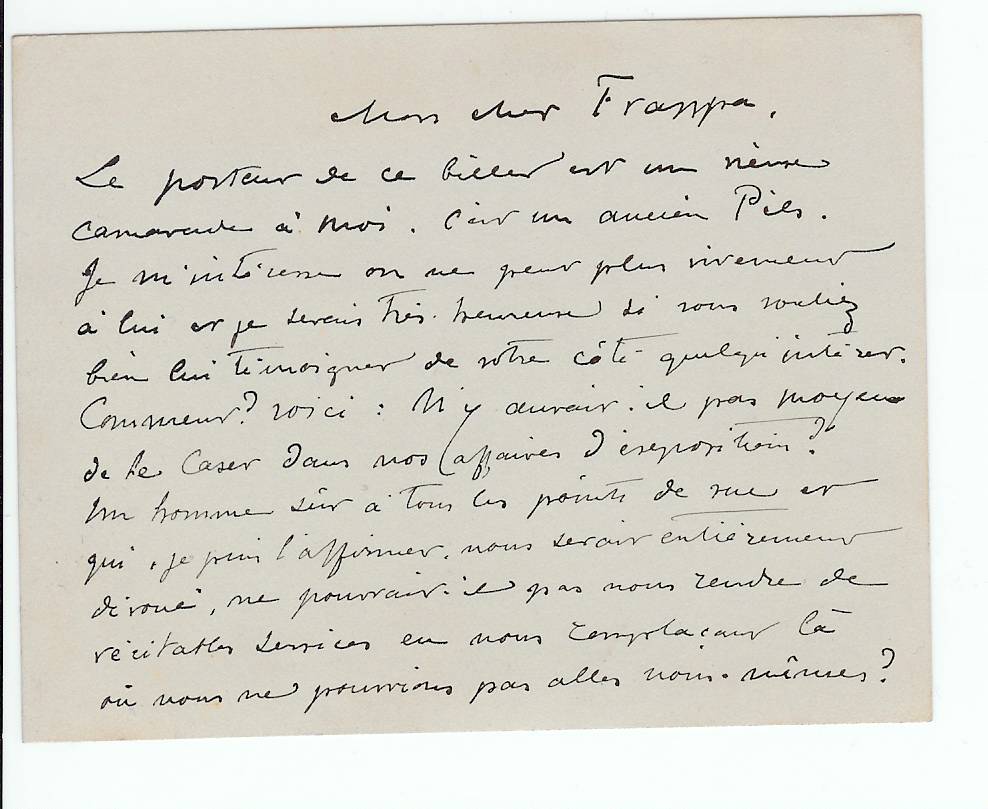 Mon cher Frappa,
Le porteur de ce billet est un vieux
camarade à moi. C'est un ancien Pils.
Je m'intéresse on ne peut plus vivement
à lui et je serais très heureux si vous vouliez
bien lui témoigner de votre côté quelqu'intérêt.
Comment? Voici : N'y aurait-il pas moyen
de le caser dans nos affaires d'exposition?
Un homme sûr à tous les points de vue et
qui, je puis l'affirmer, nous serait entièrement
dévoué, ne pourrait-il pas nous rendre de
véritables services en nous remplaçant là
où nous ne pourrions pas aller nous-mêmes?